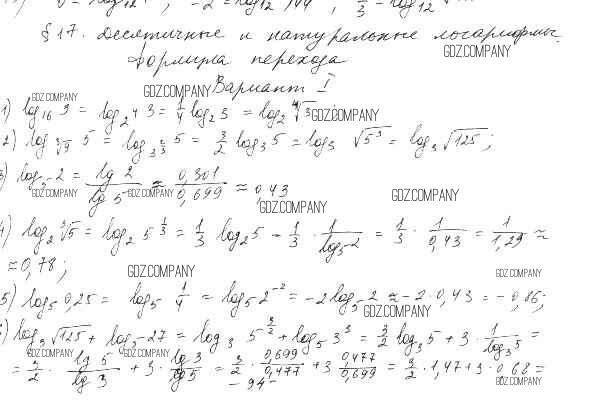 § 17. Десятичные и натуральные логарифмы.
GDZ.COMPANY
Формула перехода
GDZ.COMPANY Вариант I
GDZ.COMPANY
1) log₁₆ 3 = log₂⁴ 3 = 1/4 log₂ 3 = log₂ ⁴√3 GDZ.COMPANY
2) log ∛9 5 = log 3^(2/3) 5 = 3/2 log₃ 5 = log₃ √5³ = log₃ √125;
3) log₅ 2 = lg 2 / lg 5 ≈ 0,301 / 0,699 ≈ 0,43
GDZ.COMPANY GDZ.COMPANY GDZ.COMPANY
GDZ.COMPANY
4) log₂ ∛5 = log₂ 5^(1/3) = 1/3 log₂ 5 = 1/3 · 1 / log₅ 2 = 1/3 · 1 / 0,43 = 1 / 1,29 ≈
≈ 0,78;
GDZ.COMPANY GDZ.COMPANY
5) log₅ 0,25 = log₅ 1/4 = log₅ 2⁻² = -2 log₅ 2 ≈ -2 · 0,43 = -0,86;
GDZ.COMPANY
log₃ √125 + log₅ 27 = log₃ 5^(3/2) + log₅ 3³ = 3/2 log₃ 5 + 3 · 1 / log₃ 5 =
GDZ.COMPANY GDZ.COMPANY
= 3/2 · lg 5 / lg 3 + 3 · lg 3 / lg 5 = 3/2 · 0,699 / 0,477 + 3 0,477 / 0,699 = 3/2 · 1,47 + 3 · 0,68 =
GDZ.COMPANY
- 94 -